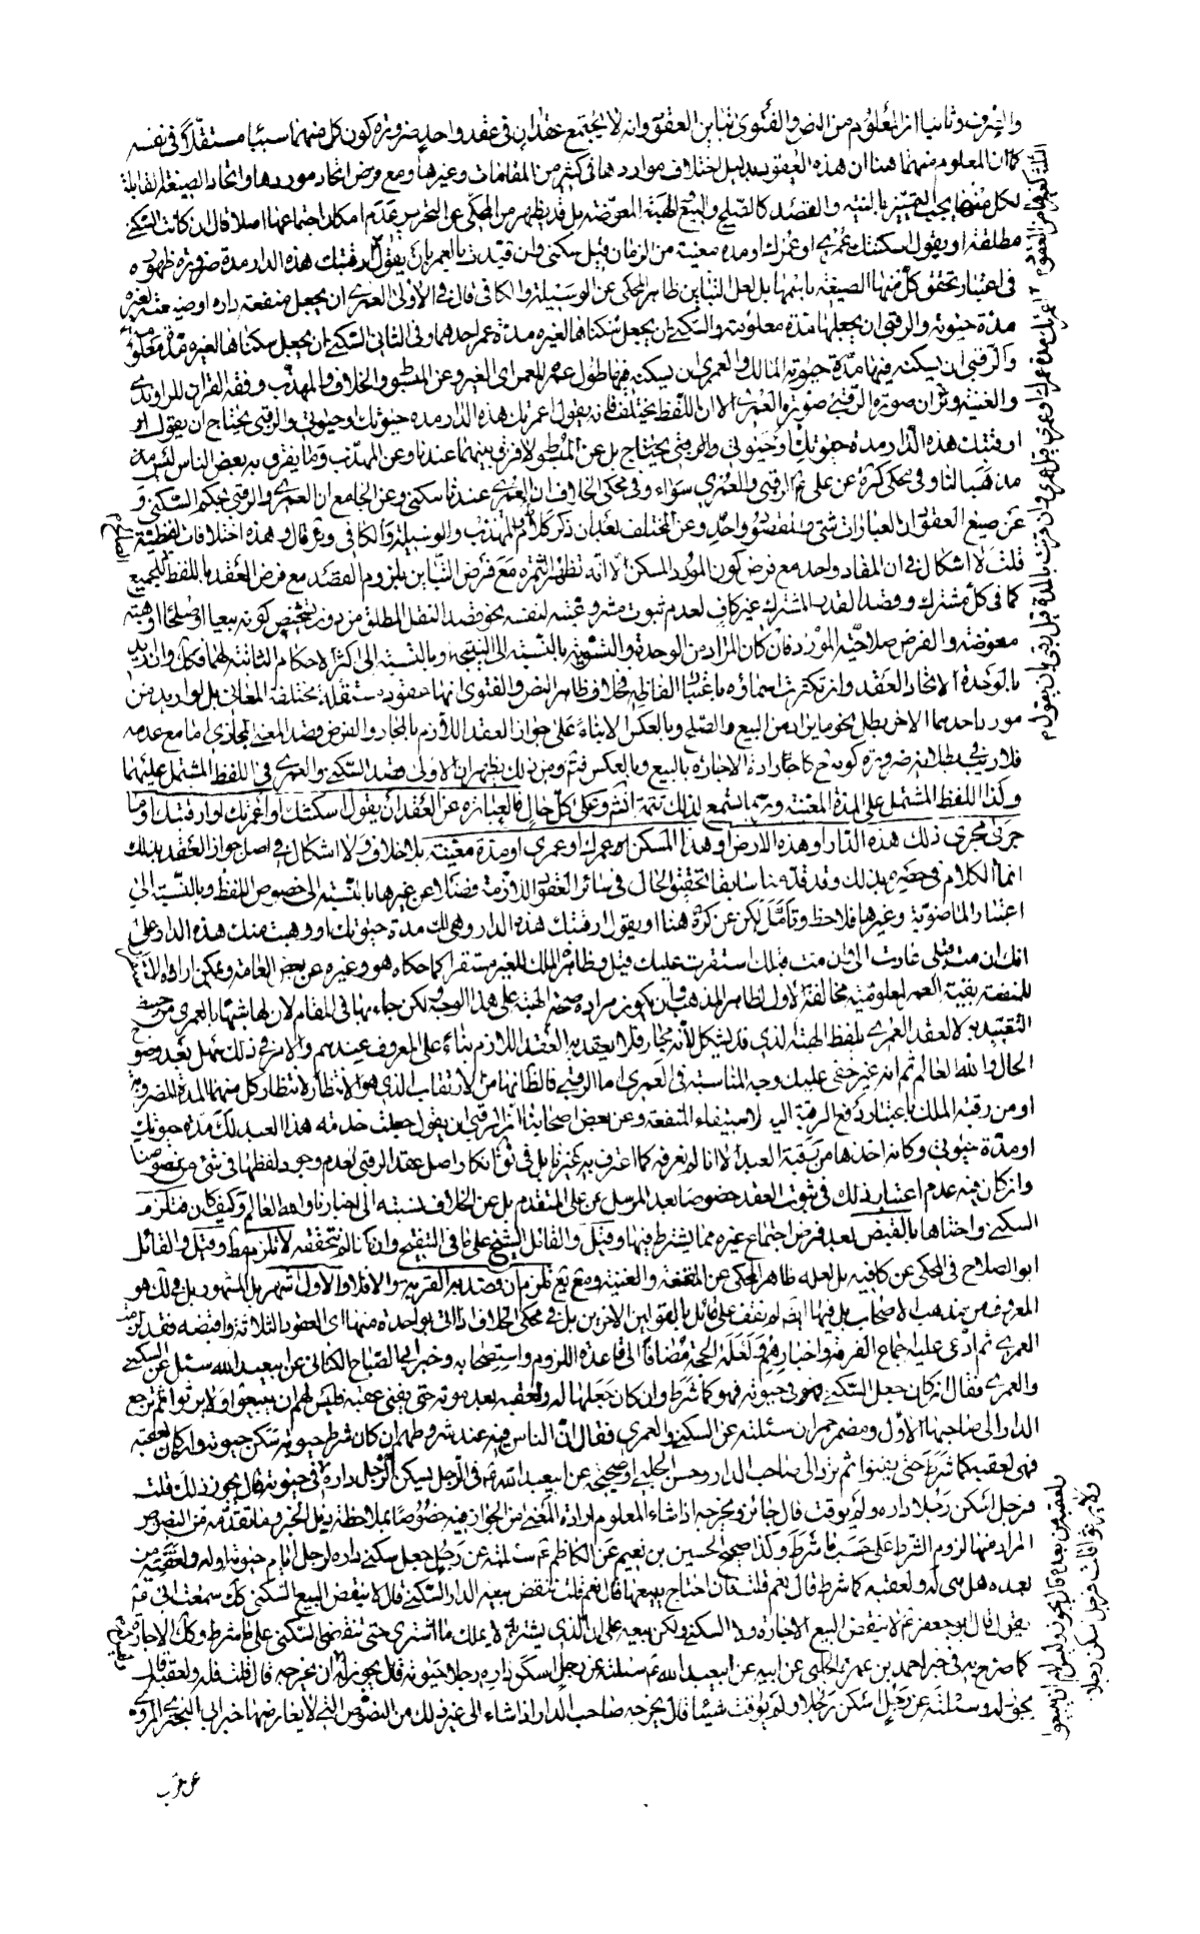 والصرف وثانيا ان المعلوم من النص والفتوى تباين العقود وانه لا يجتمع عقدان في عقد واحد ضرورة كون كل منهما سببا مستقلا في نفسه
كما ان المعلوم منهما هنا ان هذه العقود بدليل اختلاف مواردها في كثير من المقامات وغيرها ومع فرض اتحاد موردها واتحاد الصيغة القابلة
لكل منها يجب التمييز بالنية والقصد كالصلح والبيع والهبة المعوضة بل قد يظهر من المحكي عن التحرير عدم امكان اجتماعها اصلا قال ان كانت السكنى
مطلقة او يقول اسكنتك عمرى او عمرك او مدة معينة من الزمان قيل سكنى وان قيدت بالعمر بان يقول ارقبتك هذه الدار مدة ضرورة ظهوره
في اعتبار تحقق كل منها الصيغة باسمها بل لعل التباين ظاهر المحكي عن الوسيلة والكافي قال في الاولى العمرى ان يجعل منفعة داره او ضيعته لغيره
مدة حيوته والرقبى ان يجعلها مدة معلومة والسكنى ان يجعل سكناها لغيره مدة عمر احدهما وفي الثاني السكنى ان يجعل سكناها لغيره مدة معلومة
والرقبى ان يسكنه فيها مدة حيوة المالك والعمرى ان يسكنه فيها طول عمر المعمر الى الغير وعن المبسوط والخلاف والمهذب وفقه القرآن للراوندي
والغنية وئر ان صورة الرقبى صورة العمرى الا ان اللفظ يختلف فانه يقول اعمرتك هذه الدار مدة حيوتك او حيوتي والرقبى يحتاج ان يقول
ارقبتك هذه الدار مدة حيوتك او حيوتي والرقبى يحتاج بل عن المبسوط لا فرق بينهما عندنا وعن المهذب وما يفرق به بعض الناس ليس من
مذهبنا او في محكي كرة عن علي ع الرقبى والعمرى سواء وفي محكي الخلاف ان العمرى عندنا سكنى وعن الجامع ان العمرى والرقبى بحكم السكنى و
عن صيغ العقود ان العبارات شتى والمقصود واحد وعن المختلف بعد ان ذكر كلام المهذب والوسيلة والكافي وئر قال وهذه اختلافات لفظية
قلت لا اشكال في ان المفاد واحد مع فرض كون المورد المسكن الا انه تظهر الثمرة مع فرض التباين بلزوم القصد مع فرض العقد باللفظ للجميع
كما في كل مشترك وقصد القدر المشترك غير كاف لعدم ثبوت مشروعيته لنفسه نحو قصد النقل المطلق من دون تشخيص كونه بيعا او صلحا او هبة
معوضة والفرض صلاحية المورد فان كان المراد من الوحدة والتسوية بالنسبة الى النتيجة وبالنسبة الى اكثر الاحكام الثابتة لهما فكك وان اريد
بالوحدة الاتحاد العقد وان تكثرت اسماؤه باعتبار الفاظه فخلاف ظاهر النص والفتوى انها عقود مستقلة مختلفة المعاني بل لو اريد من
مورد باحدهما الاخر بطل نحو ما يراد من البيع والصلح وبالعكس الا بناء على جواز العقد اللازم بالمجاز والفرض قصد المعنى المجازي اما مع عدمه
فلا ريب في بطلانه ضرورة كونه ح كارادة الاجارة بالبيع وبالعكس فتم ومن ذلك يظهر ان الاولى قصد السكنى والعمرى في اللفظ المشتمل عليهما
وكذا اللفظ المشتمل على المدة المعينة وربما تسمع لذلك تتمة انشم وعلى كل حال فالعبارة عن العقد ان يقول اسكنتك او اعمرتك او ارقبتك وما
جرى مجرى ذلك هذه الدار او هذه الارض او هذا المسكن عمرك او عمري او مدة معينة بلا خلاف ولا اشكال في اصل جواز العقد بذلك
انما الكلام في حصره بذلك وقد قدمنا سابقا تحقيق الحال في سائر العقود اللازمة فضلا عن غيرها بالنسبة الى خصوص اللفظ وبالنسبة الى
اعتبار الماضوية وغيرها فلاحظ وتأمل لكن عن كرة هنا او يقول ارقبتك هذه الدار وهي لك مدة حيوتك او وهبت منك هذه الدار على
انك ان مت قبلي عادت الي وان مت قبلك استقرت عليك قيل وظاهره الملك للغير مستقرا كما حكاه هو وغيره عن بعض العامة ويمكن ارادة
للمنفعة بقية العمر لمعلومية مخالفة الاول لظاهر المذهب وان يكون مراده صحة الهبة على هذا الوجه ولكن جاء بها في المقام لان لها شبها بالعمرى من حيث
التقييد به لا لعقد العمرى بلفظ الهبة الذي قد يشكل لانه مجاز فلا ينعقد به العقد اللازم بناء على المعروف عندهم والامر في ذلك سهل بعد وضوح
الحال والله العالم ثم انه غير خفي عليك وجه المناسبة في العمرى اما الرقبى فالظ انها من الارتقاب الذي هو الانتظار لانتظار كل منهما المدة المضروبة
او من رقبة الملك باعتبار دفع الرقبة اليه لاستيفاء المنفعة وعن بعض اصحابنا ان الرقبى ان يقول جعلت خدمة هذا العبد لك مدة حيوتك
او مدة حيوتي وكانه اخذها من رقبة العبد الا انا لم نعرفه كما اعترف به غيرنا بل في ئر انكار اصل عقد الرقبى لعدم وجود لفظها في شيء من نصوصنا
وان كان فيه عدم اعتبار ذلك في ثبوت العقد خصوصا بعد المرسل عن علي المتقدم بل عن الخلاف نسبته الى اخبارنا والله العالم وكيف كان فتلزم
السكنى واختاها بالقبض بعد فرض اجتماع غيره مما يشترط فيها وقيل والقائل الشيخ على ما في التنقيح وان كنا لم نتحققه لا تلزم مط وقيل والقائل
ابو الصلاح في المحكي عن كافيه بل لعله ظاهر المحكي عن المقنعة والغنية وجامع يع تلزم ان قصد به القربة والا فلا والاول اشهر بل المشهور بل في لك هو
المعروف من مذهب الاصحاب بل فيها انه لم نقف على قائل بالقولين الاخرين بل في محكي الخلاف اذا اتى بواحدة منها اي العقود الثلاثة واقبضه فقد لزمت
العمرى ثم ادعى عليه اجماع الفرقة واخبارهم ولعله الحجة مضافا الى قاعدة اللزوم واستصحابه وخبر ابي الصباح الكناني عن ابيعبد الله سئل عن السكنى
والعمرى فقال ان كان جعل السكنى في حيوته فهو كما شرط وان كان جعلها له ولعقبه بعد موته حتى يفنى عقبه فليس لهم ان يبيعوا ولا يورثوا ثم ترجع
الدار الى صاحبها الاول ومضمر حمران سئلته عن السكنى والعمرى فقال ان الناس فيه عند شروطهم ان كان شرط حيوته سكن حيوته وان كان لعقبه
فهو لعقبه كما شرط حتى يفنوا ثم ترد الى صاحب الدار وحسن الحلبي او صحيحه عن ابيعبد الله ع في الرجل يسكن الرجل داره في حيوته قال يجوز ذلك قلت
فرجل اسكن رجلا داره ولم يوقت قال جائز ويخرجه اذا شاء المعلوم ارادة المعنى من الجواز فيه خصوصا بملاحظة ذيل الخبر وما تقدمه من النصوص
المراد فيها لزوم الشرط على حسب ما شرط وكذا صحيح الحسين بن نعيم عن الكاظم ع سئلته عن رجل جعل سكنى داره لرجل ايام حيوته او له ولعقبه من
بعده هل هي له ولعقبه كما شرط قال نعم قلت فان احتاج يبيعها قال نعم قلت فتنقض بيعه الدار السكنى قال لا ينقض البيع السكنى كك سمعت ابي ع
يقول قال ابو جعفر ع لا ينقض البيع الاجارة ولا السكنى ولكن يبيعه على ان الذي يشتريه لا يملك ما اشترى حتى تنقضي السكنى على ما شرط وكك الاجارة
كما صرح به في خبر احمد بن عمر الحلبي عن ابيه عن ابيعبد الله ع سئلته عن رجل اسكن داره رجلا حيوته قال يجوز له وليس له ان يخرجه قال قلت فله ولعقبه قال
يجوز له وسئلته عن رجل اسكن رجلا ولم يوقت شيئا قال يخرجه صاحب الدار اذا شاء الى غير ذلك من النصوص التي لا يعارضها خبر ابي البختري المروي
عن قرب